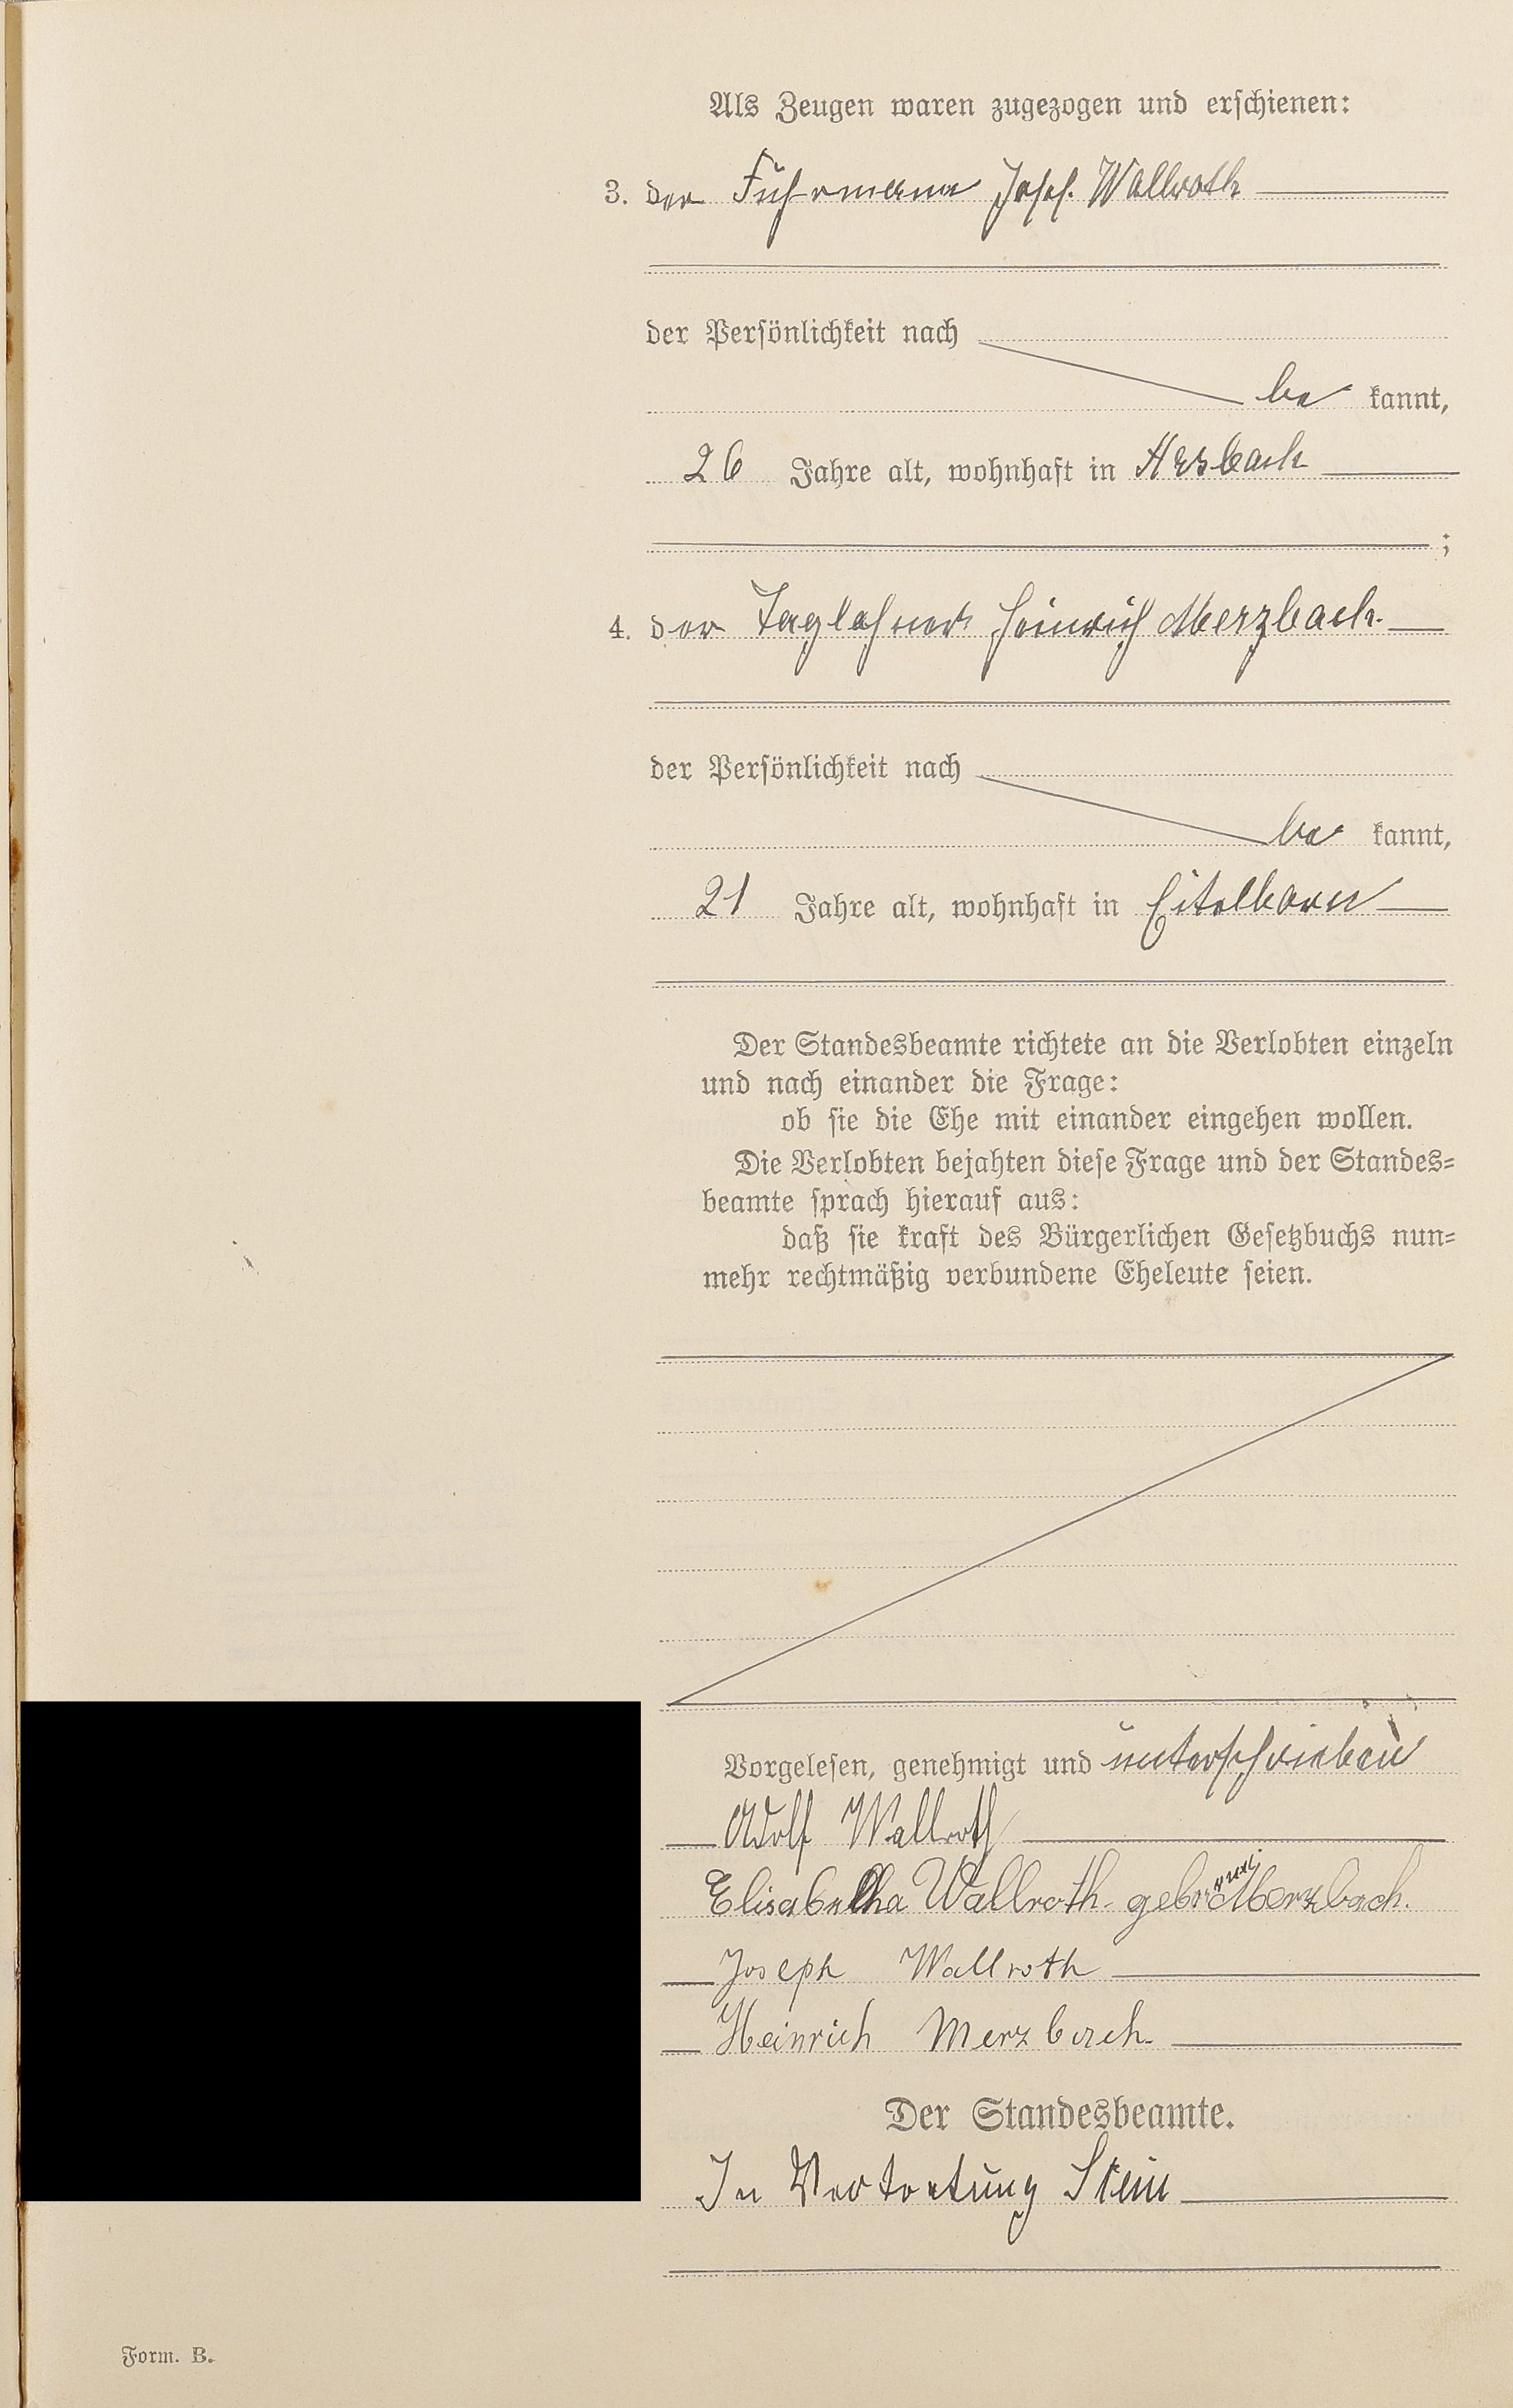 Als Zeugen waren zugezogen und erschienen:
3. der Fuhrmann Josef Wallroth
der Persönlichkeit nach
be kannt,
26 Jahre alt, wohnhaft in Arzbach
;
4. der Taglöhner Heinrich Merzbach
der Persönlichkeit nach
be kannt,
21 Jahre alt, wohnhaft in Eitelborn
Der Standesbeamte richtete an die Verlobten einzeln
und nach einander die Frage:
ob sie die Ehe mit einander eingehen wollen.
Die Verlobten bejahten diese Frage und der Standes=
beamte sprach hierauf aus:
daß sie kraft des Bürgerlichen Gesetzbuchs nun=
mehr rechtmäßig verbundene Eheleute seien.
Vorgelesen, genehmigt und unterschrieben
Adolf Wallroth
Elisabetha Wallroth geb. Merzbach.
Joseph Wallroth
Heinrich Merzbach.
Der Standesbeamte.
In Vertretung Stein
Form. B.